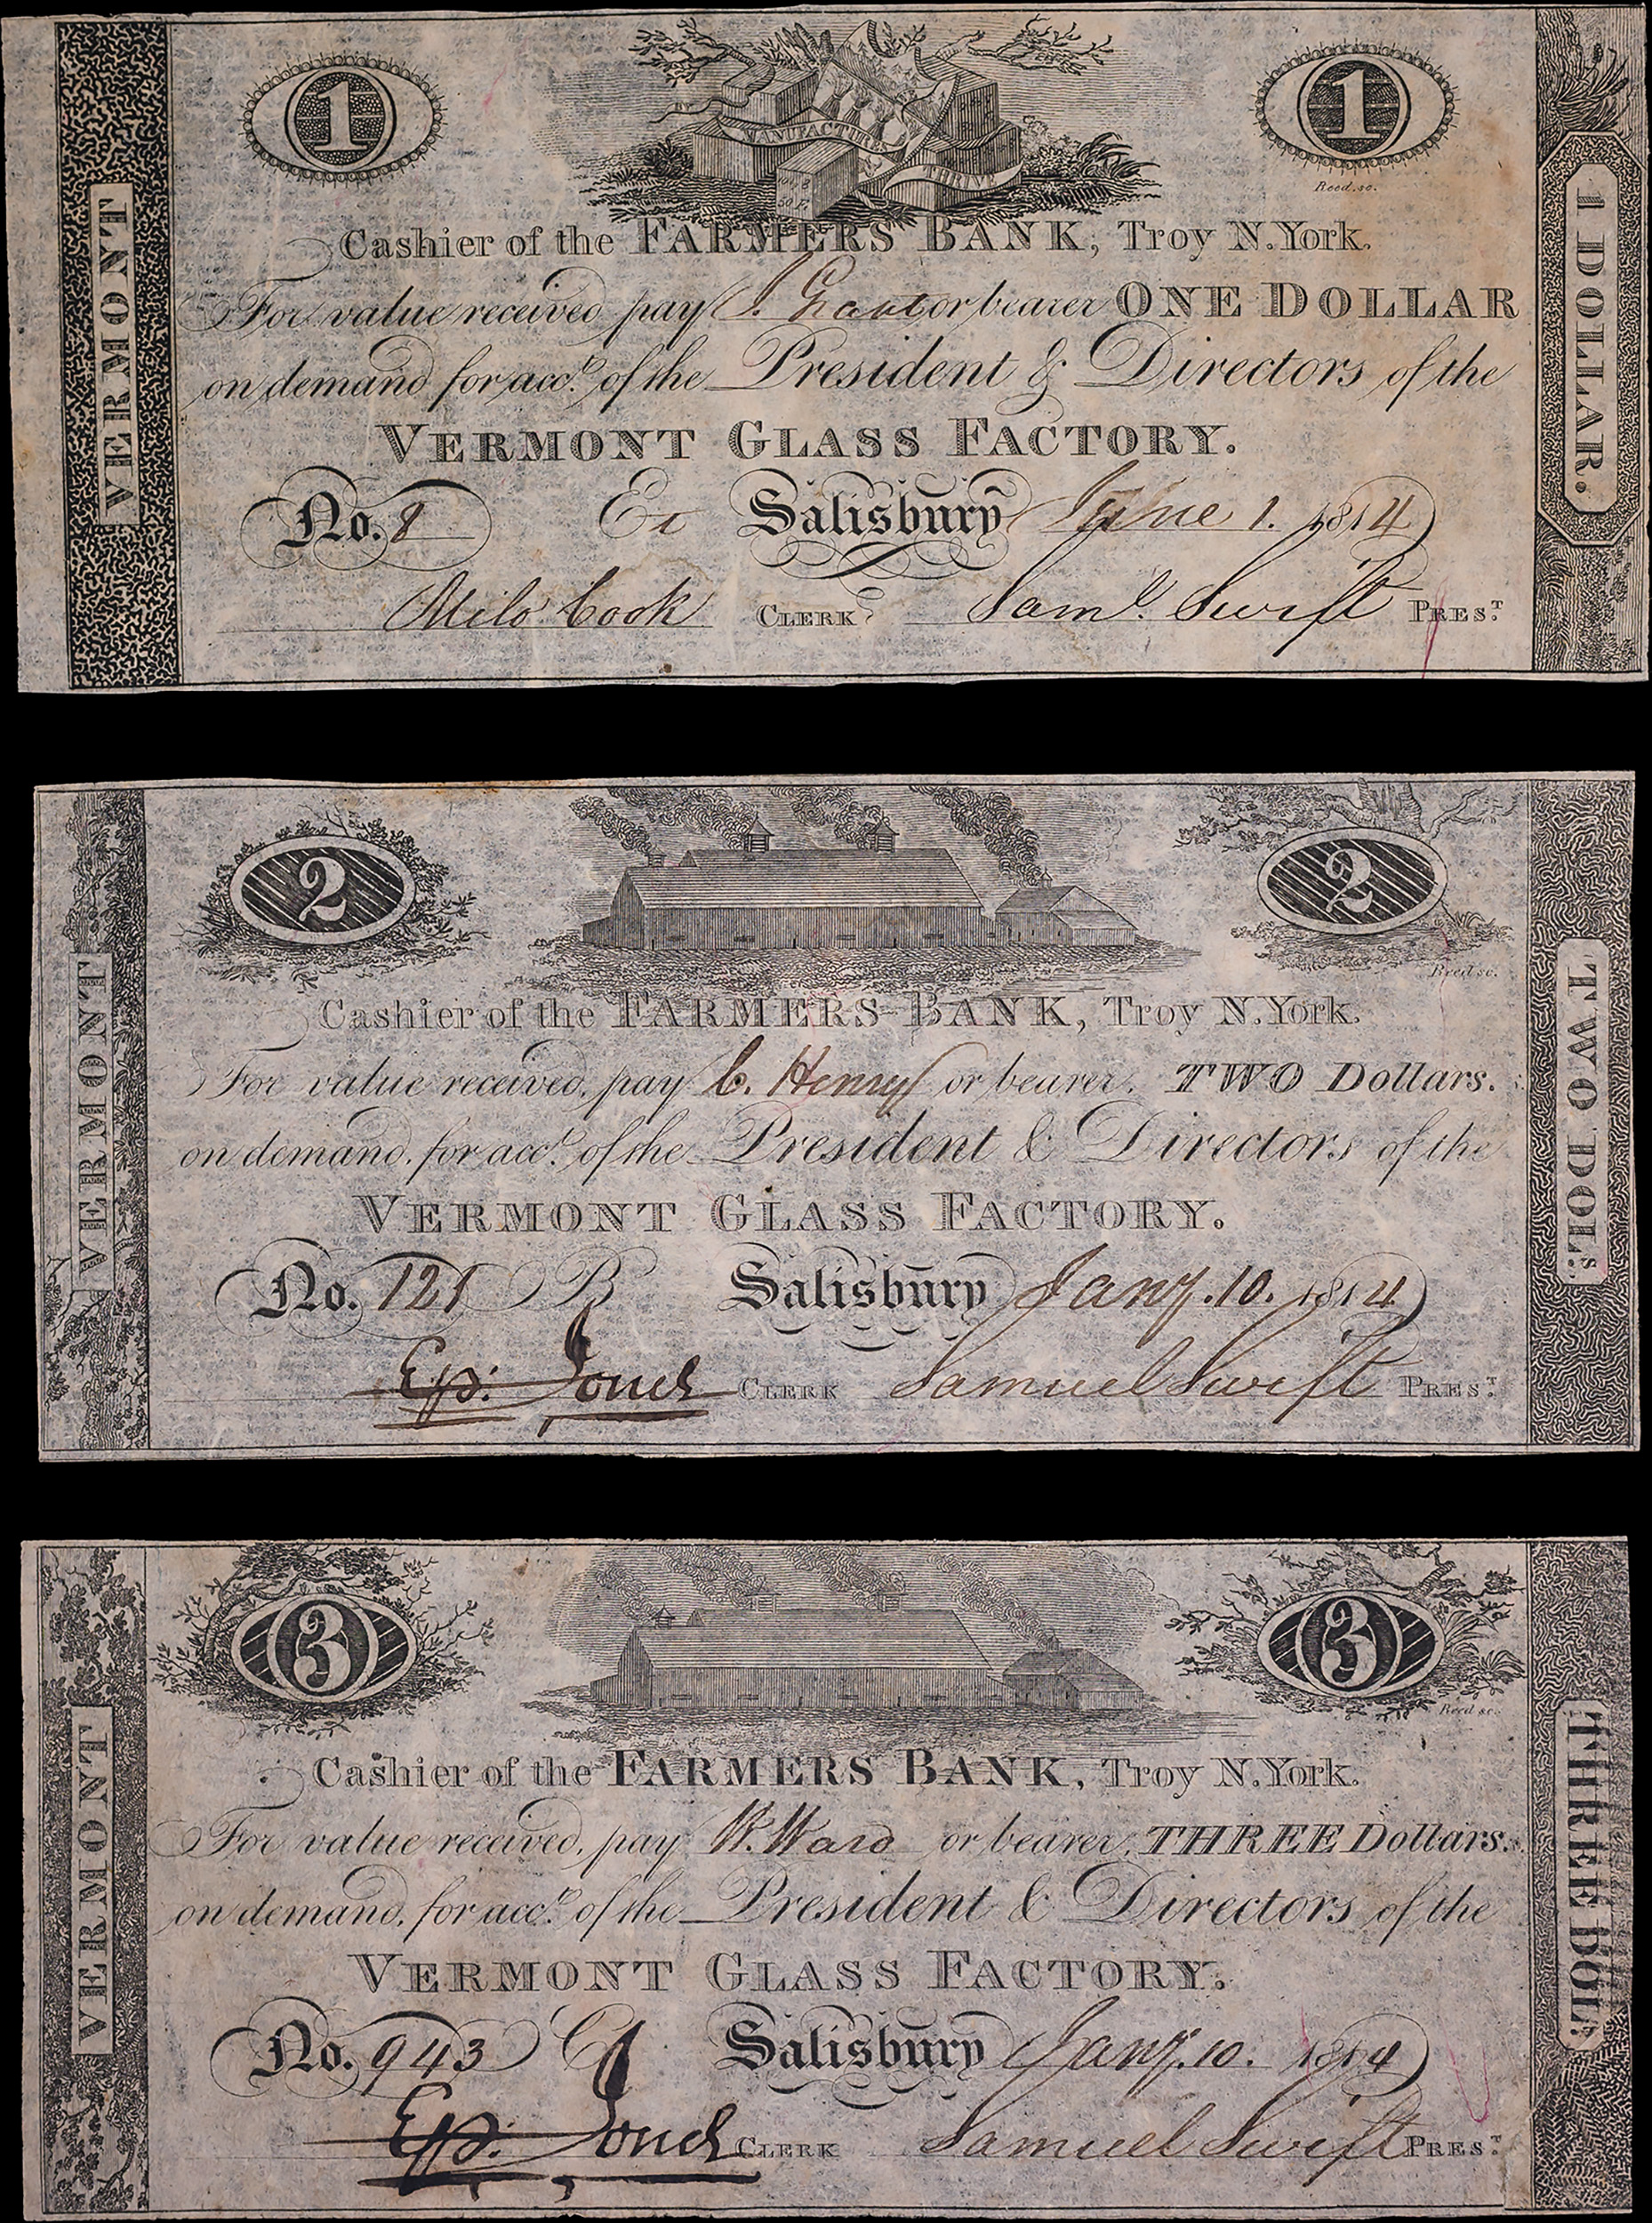 1
1
MANUFACTURES
THRIVE
50 F.
Reed. sc.
VERMONT
1 DOLLAR.
Cashier of the FARMERS BANK, Troy N. York.
For value received pay J. Grant or bearer ONE DOLLAR
on demand for acct. of the President & Directors of the
VERMONT GLASS FACTORY.
No. 8 Salisbury June 1. 1814
Milo Cook CLERK Saml. Swift PREST.
2
2
Reed sc.
VERMONT
TWO DOLS.
Cashier of the FARMERS BANK, Troy N. York.
For value received, pay C. Henry or bearer. TWO Dollars.
on demand, for acct. of the President & Directors of the
VERMONT GLASS FACTORY.
No. 121 B Salisbury Jany. 10. 1814
Ep: Jones CLERK Samuel Swift PREST.
3
3
Reed sc.
VERMONT
THREE DOLS.
Cashier of the FARMERS BANK, Troy N. York.
For value received, pay W. Ward or bearer, THREE Dollars.
on demand, for acct. of the President & Directors of the
VERMONT GLASS FACTORY.
No. 943 C Salisbury Jany. 10. 1814
Ep: Jones CLERK Samuel Swift PREST.